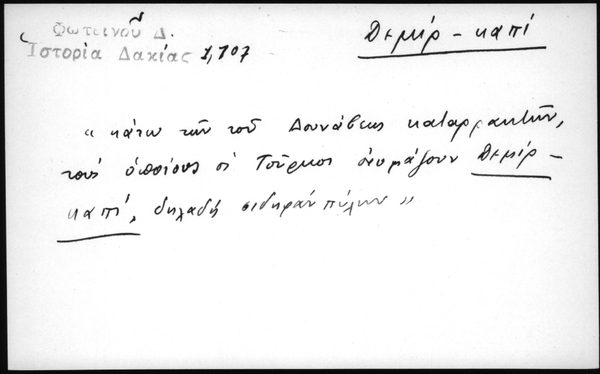 Φωτεινοῦ Δ.
Ἱστορία Δακίας 1,107
Δεμίρ - καπί
“ κάτω τῶν τοῦ Δουνάβεως καταρρακτῶν,
τοὺς ὁποίους οἱ Τοῦρκοι ὀνομάζουν Δεμίρ -
καπί, δηλαδή σιδηρᾶν πύλην ”